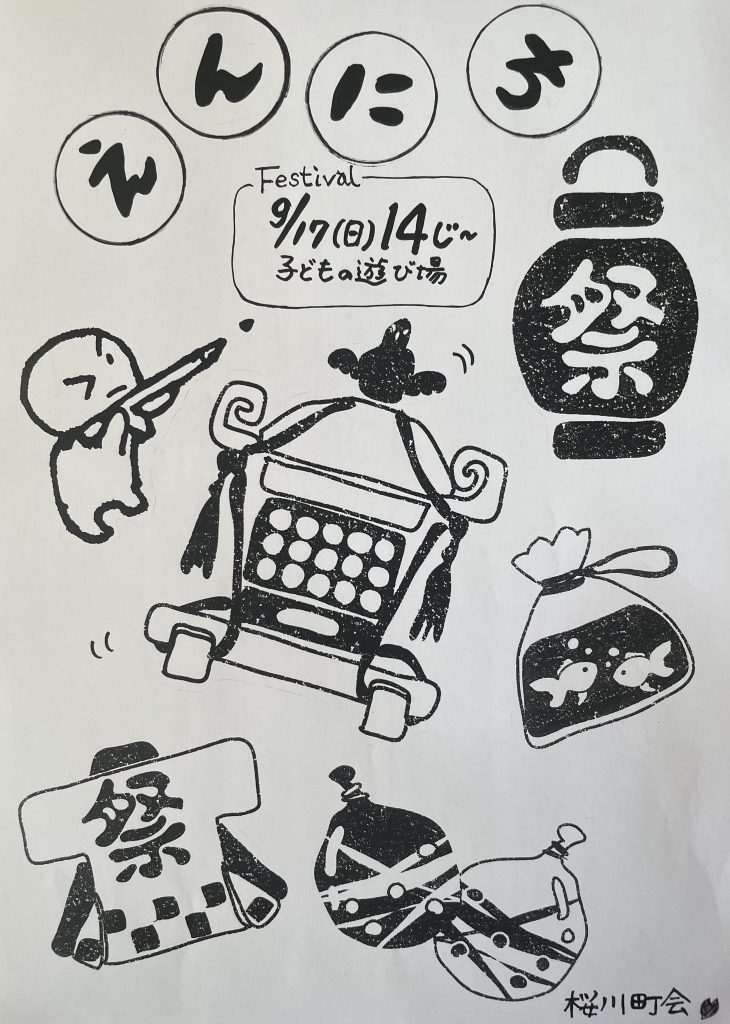 えんにち
Festival
9/17(日)14じ~
子どもの遊び場
祭
祭
桜川町会